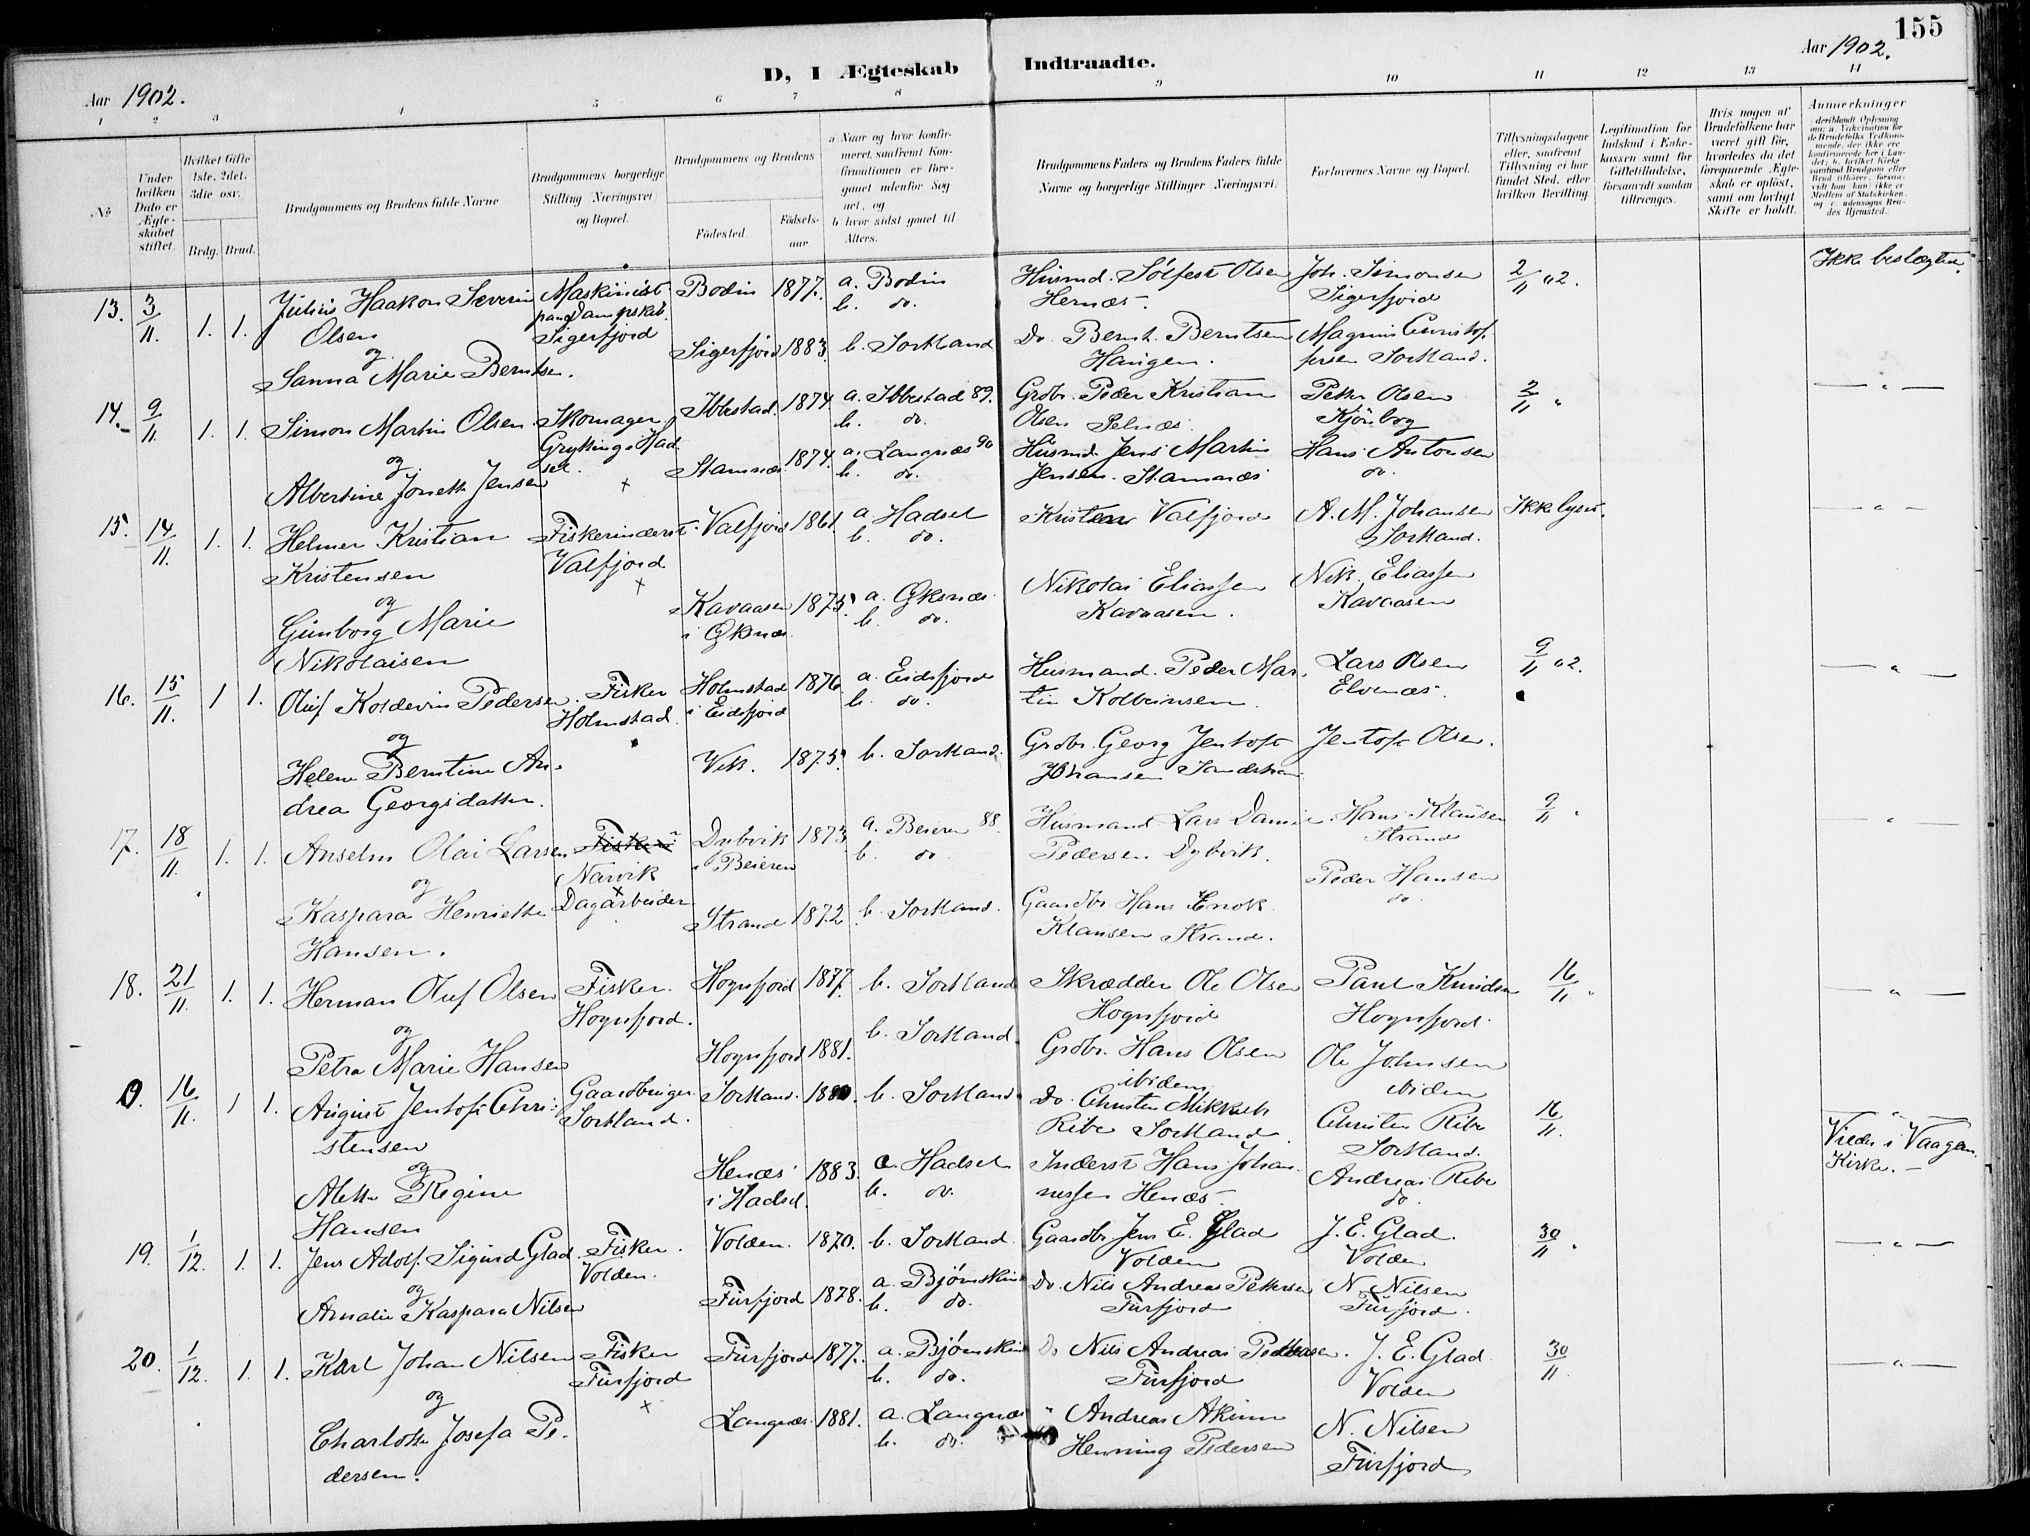 155
D, I Ægteskab Indtraadte.
Aar 1902.
Aar 1902.
1 2 3 4 5 6 7 8 9 10 11 12 13 14
No
Under hvilken Dato er Ægteskabet stiftet.
Hvilket Gifte 1ste, 2det, 3die osv.
Brdg. Brud.
Brudgommens og Brudens fulde Navne
Brudgommens borgerlige Stilling Næringsvei og Bopæl.
Brudgommens og Brudens
Födested.
Födselsaar.
a Naar og hvor konfirmeret, saafremt Konfirmationen er foregaaet udenfor Sognet, og
b hvor sidst gaaet til Alters.
Brudgommens Faders og Brudens Faders fulde Navne og borgerlige Stillinger Næringsvei.
Forlovernes Navne og Bopæl.
Tillysningsdagene eller, saafremt Tillysning ei har fundet Sted, efter hvilken Bevilling
Legitimation for Indskud i Enkekassen samt for Giftetilladelse, forsaavidt saadan tiltrænges.
Hvis nogen af Brudefolkene har været gift för, hvorledes da det foregaaende Ægteskab er oplöst, samt om lovligt Skifte er holdt.
Anmerkninger
13. 3/11. 1. 1. Julius Haakon Severin Maskinist Bodin 1877. a. Bodin Husmd. Sölfest Olsen Joh. Simonsen 2/11 02. Ikke beslægtede.
Olsen paa Dampskib b. do. Hernæs. Sigerfjord
og Sigerfjord
Sanna Marie Berntsen. Sigerfjord 1883. b. Sortland Do. Bernt. Berntsen Magnus Christof
Haugen. fersen Sortland.
14. 9/11. 1. 1. Simon Martin Olsen Skomager Ibbestad. 1874 a. Ibbestad 89. Grdbr. Peder Kristian Peter Olsen 2/11 "
b. do. Olsen Selnæs. Kjönbog
og Gryttings Had
sel.
Albertine Jonette Jensen Stamnæs. 1874. a. Langnæs 90 Husmd. Jens Martin Hans Antonsen
b. do. Jensen. Stamnæs do.
15. 14/11. 1. 1. Helmer Kristian Fiskerinderst Valfjord 1861. a. Hadsel Kristen Valfjord A. M. Johansen Ikke lyst.
Kristensen Valfjord b. do. Sortland.
og
Gunborg Marie Kavaasen 1875. a. Øksnæs. Nikolai Eliassen Nik. Eliassen
Nikolaisen i Øksnæs. b. do. Kavaasen. Kavaasen
16. 15/11. 1 1. Oluf Koldevin Pedersen. Fisker Holmstad 1876 a. Eidsfjord Husmand. Peder Mar- Lars Olsen 9/11 02.
Holmstad. i Eidsfjord b. do. tin Kolbeinsen. Elvenæs.
og
Helene Berntine An- Vik. 1875. b. Sortland. Grdbr. Georg Jentoft Jentoft Olsen.
drea Georgsdatter. Johansen
17. 18/11. 1. 1. Anselm Olai Larsen Fisker Dybvik 1873 a. Beieren 88. Husmand Lars Daniel Hans Klausen 9/11 "
Narvik i Beieren b. do. Pedersen Dybvik. Strand
og Dagarbeider
Kaspara Henriette Strand 1872. b. Sortland. Gaardbr. Hans Enok Peder Hansen
Hansen. Klausen Strand. do.
18. 21/11. 1. 1. Herman Oluf Olsen Fisker. Hognfjord 1877. b. Sortland Skrædder Ole Olsen Paul Knudsen 16/11 "
Hognfjord. Hognfjord Hognfjord.
og
Petra Marie Hansen Hognfjord 1881. b. Sortland. Grdbr. Hans Olsen Ole Johnsen
ibidem ibidem
0. 16/11. 1 1. August Jentoft Chri- Gaardbruger Sortland. 1880. b. Sortland. Do. Christen Mikkels Christen Ribe 16/11.
stensen Sortland. Ribe Sortland. Sortland. Viede i Vaagan
og Kirke. -
Alette Regine Henæs 1883. a. Hadsel Inderst Hans Johan- Andreas Ribe
Hansen i Hadsel. b. do. nessen Henæs. do
19. 1/12. 1. 1. Jens Adolf. Sigurd Glad Fisker. Volden. 1870. b. Sortland. Gaardbr. Jens E. Glad J. E. Glad. 30/11 "
Volden. Volden Volden
og
Amalie Kaspara Nilsen Furfjord 1878. a. Bjørnskin Do. Nils Andreas Pettersen N. Nilsen
b. do. Furfjord Furfjord.
20. 1/12. 1. 1. Karl Johan Nilsen Fisker Furfjord 1877. a. Bjørnskin Do Nils Andreas J. E. Glad. 30/11.
Furfjord b. do. Furfjord Volden
og
Charlotte Josefa Pe- Langnæs. 1881. a. Langnæs " Andreas N. Nilsen
dersen. b. do. Henning Pedersen Furfjord